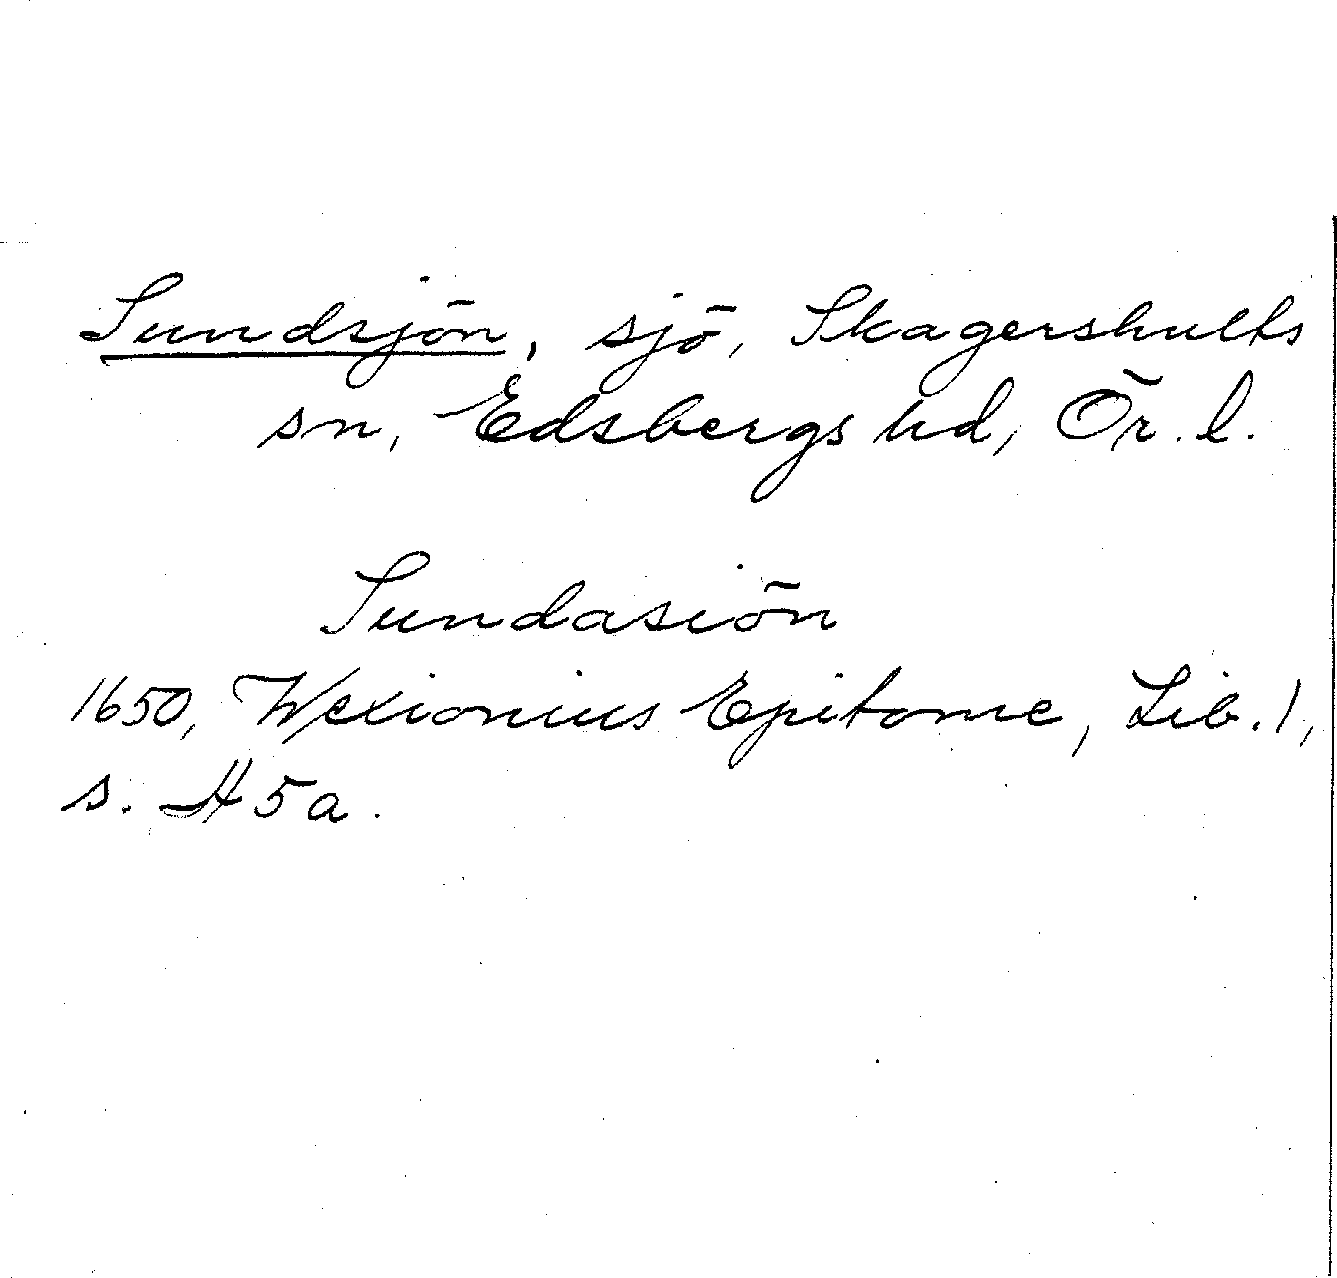 Sundsjön, sjö, Skagershults
sn, Edsbergs hd, Ör. l.
Sundasiön
1650, Wexionius Epitome, Lib. 1,
s. H5a.